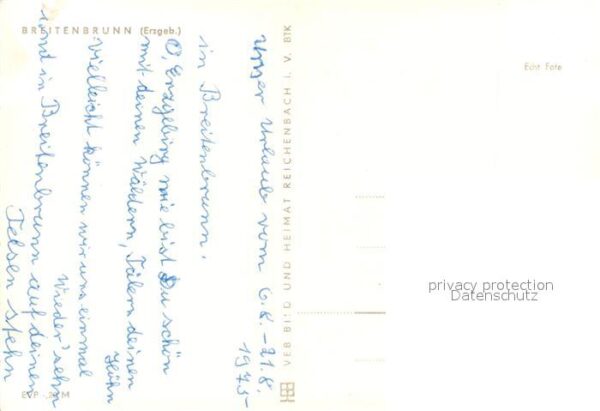 BREITENBRUNN (Erzgeb.)
Unser Urlaub vom 6.8.-21.8.
1975-
in Breitenbrunn.
O, Erzgebirg wie bist Du schön
mit deinen Wäldern, Tälern deinen
Höhn
vielleicht können wir uns einmal
Wieder'sehn
und in Breitenbrunn auf deinen
Felsen stehn
VEB BILD UND HEIMAT REICHENBACH I. V. BTK
Echt Foto
privacy protection
Datenschutz